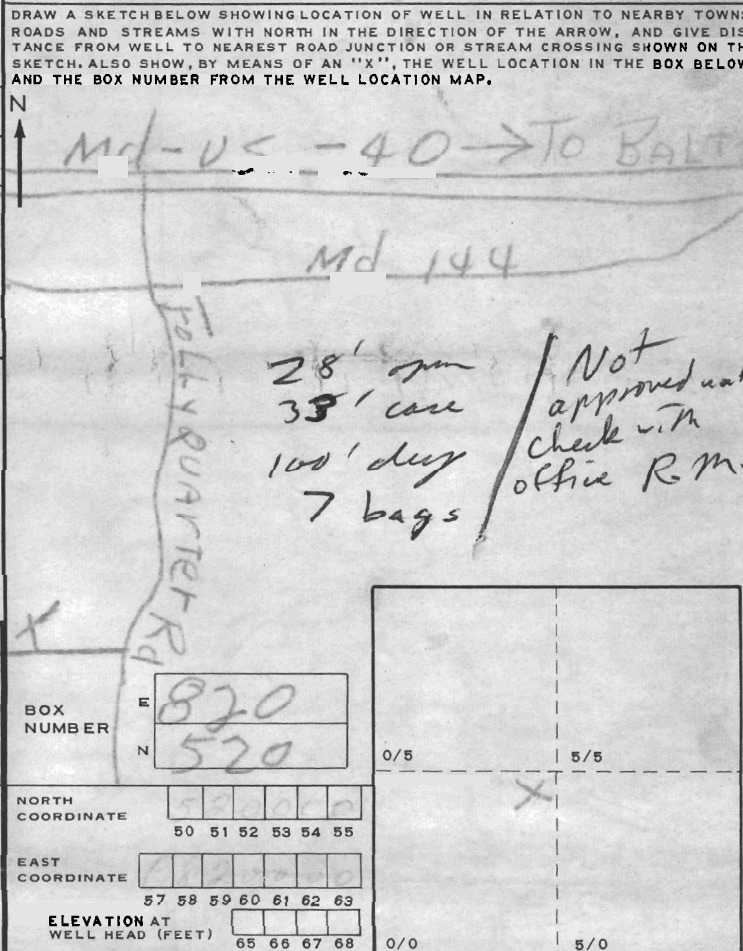 DRAW A SKETCH BELOW SHOWING LOCATION OF WELL IN RELATION TO NEARBY TOWNS
ROADS AND STREAMS WITH NORTH IN THE DIRECTION OF THE ARROW, AND GIVE DIS
TANCE FROM WELL TO NEAREST ROAD JUNCTION OR STREAM CROSSING SHOWN ON TH
SKETCH. ALSO SHOW, BY MEANS OF AN "X", THE WELL LOCATION IN THE BOX BELOW
AND THE BOX NUMBER FROM THE WELL LOCATION MAP.
N
Md - US - 40 → TO BALT
Md 144
FOLLY QUARTER Rd
28'
case
100' deep
7 bags
Not
approved
check with
office R.M.
X
BOX
NUMBER
E
820
N
520
0/5
5/5
X
NORTH
COORDINATE
50 51 52 53 54 55
EAST
COORDINATE
57 58 59 60 61 62 63
ELEVATION AT
WELL HEAD (FEET)
65 66 67 68
0/0
5/0